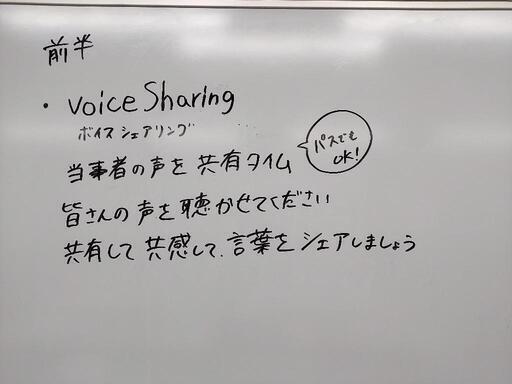 前半
・voice Sharing
ボイスシェアリング
当事者の声を共有タイム
パスでも
OK!
皆さんの声を聴かせてください
共有して共感して、言葉をシェアしましょう